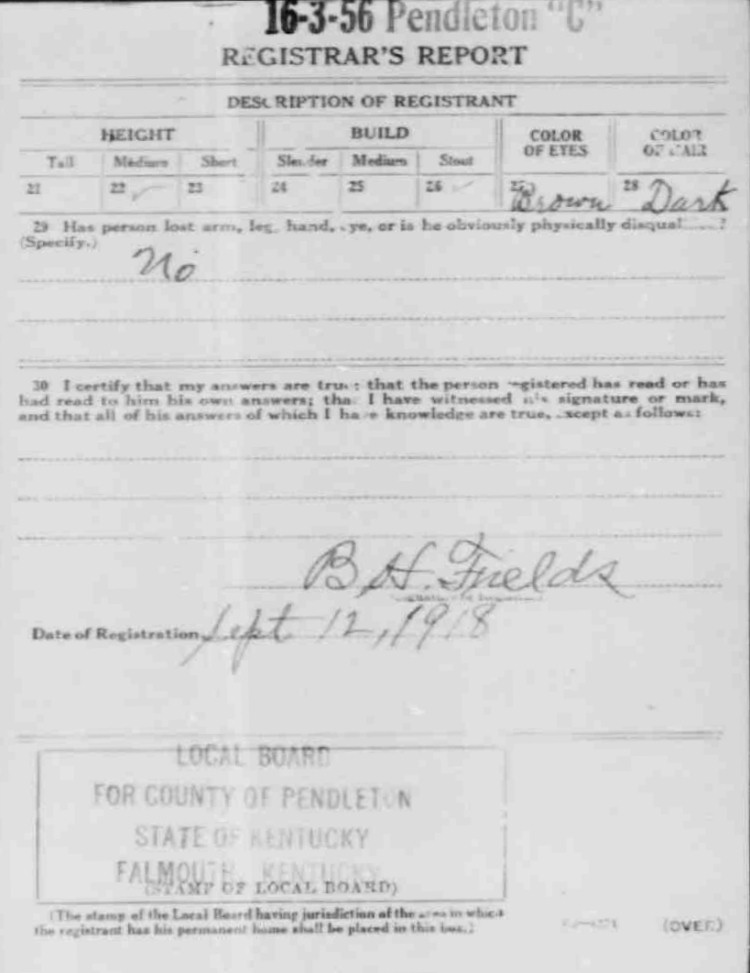 16-3-56 Pendleton "C"
REGISTRAR'S REPORT
DESCRIPTION OF REGISTRANT
HEIGHT BUILD COLOR OF EYES COLOR OF HAIR
Tall Medium Short Slender Medium Stout
21 22 ✓ 23 24 25 26 ✓ 27 Brown 28 Dark
29 Has person lost arm, leg, hand, eye, or is he obviously physically disqualified?
(Specify.)
No
30 I certify that my answers are true; that the person registered has read or has
had read to him his own answers; that I have witnessed his signature or mark,
and that all of his answers of which I have knowledge are true, except as follows:
B. H. Fields
Date of Registration Sept 12, 1918
LOCAL BOARD
FOR COUNTY OF PENDLETON
STATE OF KENTUCKY
FALMOUTH, KENTUCKY
(STAMP OF LOCAL BOARD)
(The stamp of the Local Board having jurisdiction of the area in which
the registrant has his permanent home shall be placed in this box.)
(OVER)